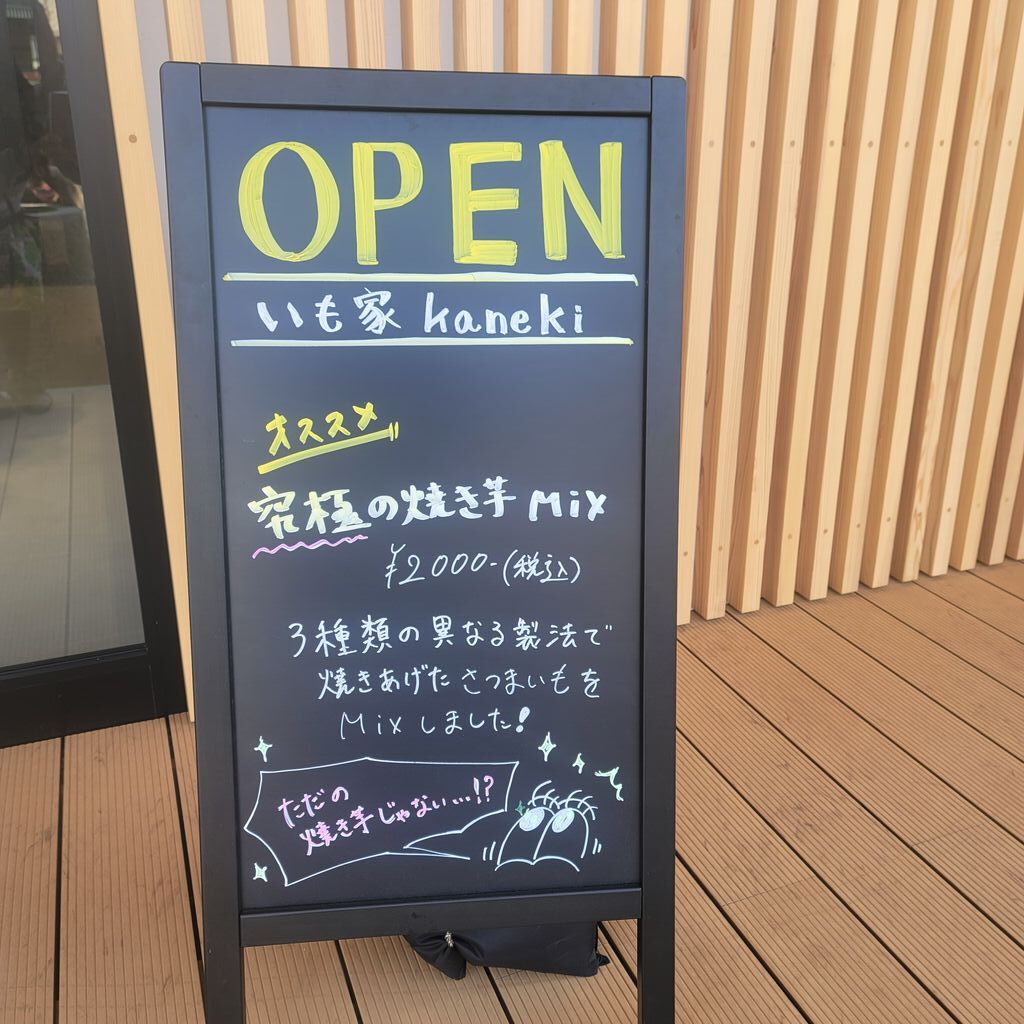 OPEN
いも家 kaneki
オススメ
究極の焼き芋 Mix
¥2000-(税込)
3種類の異なる製法で
焼きあげたさつまいもを
Mixしました!
ただの
焼き芋じゃない…!?